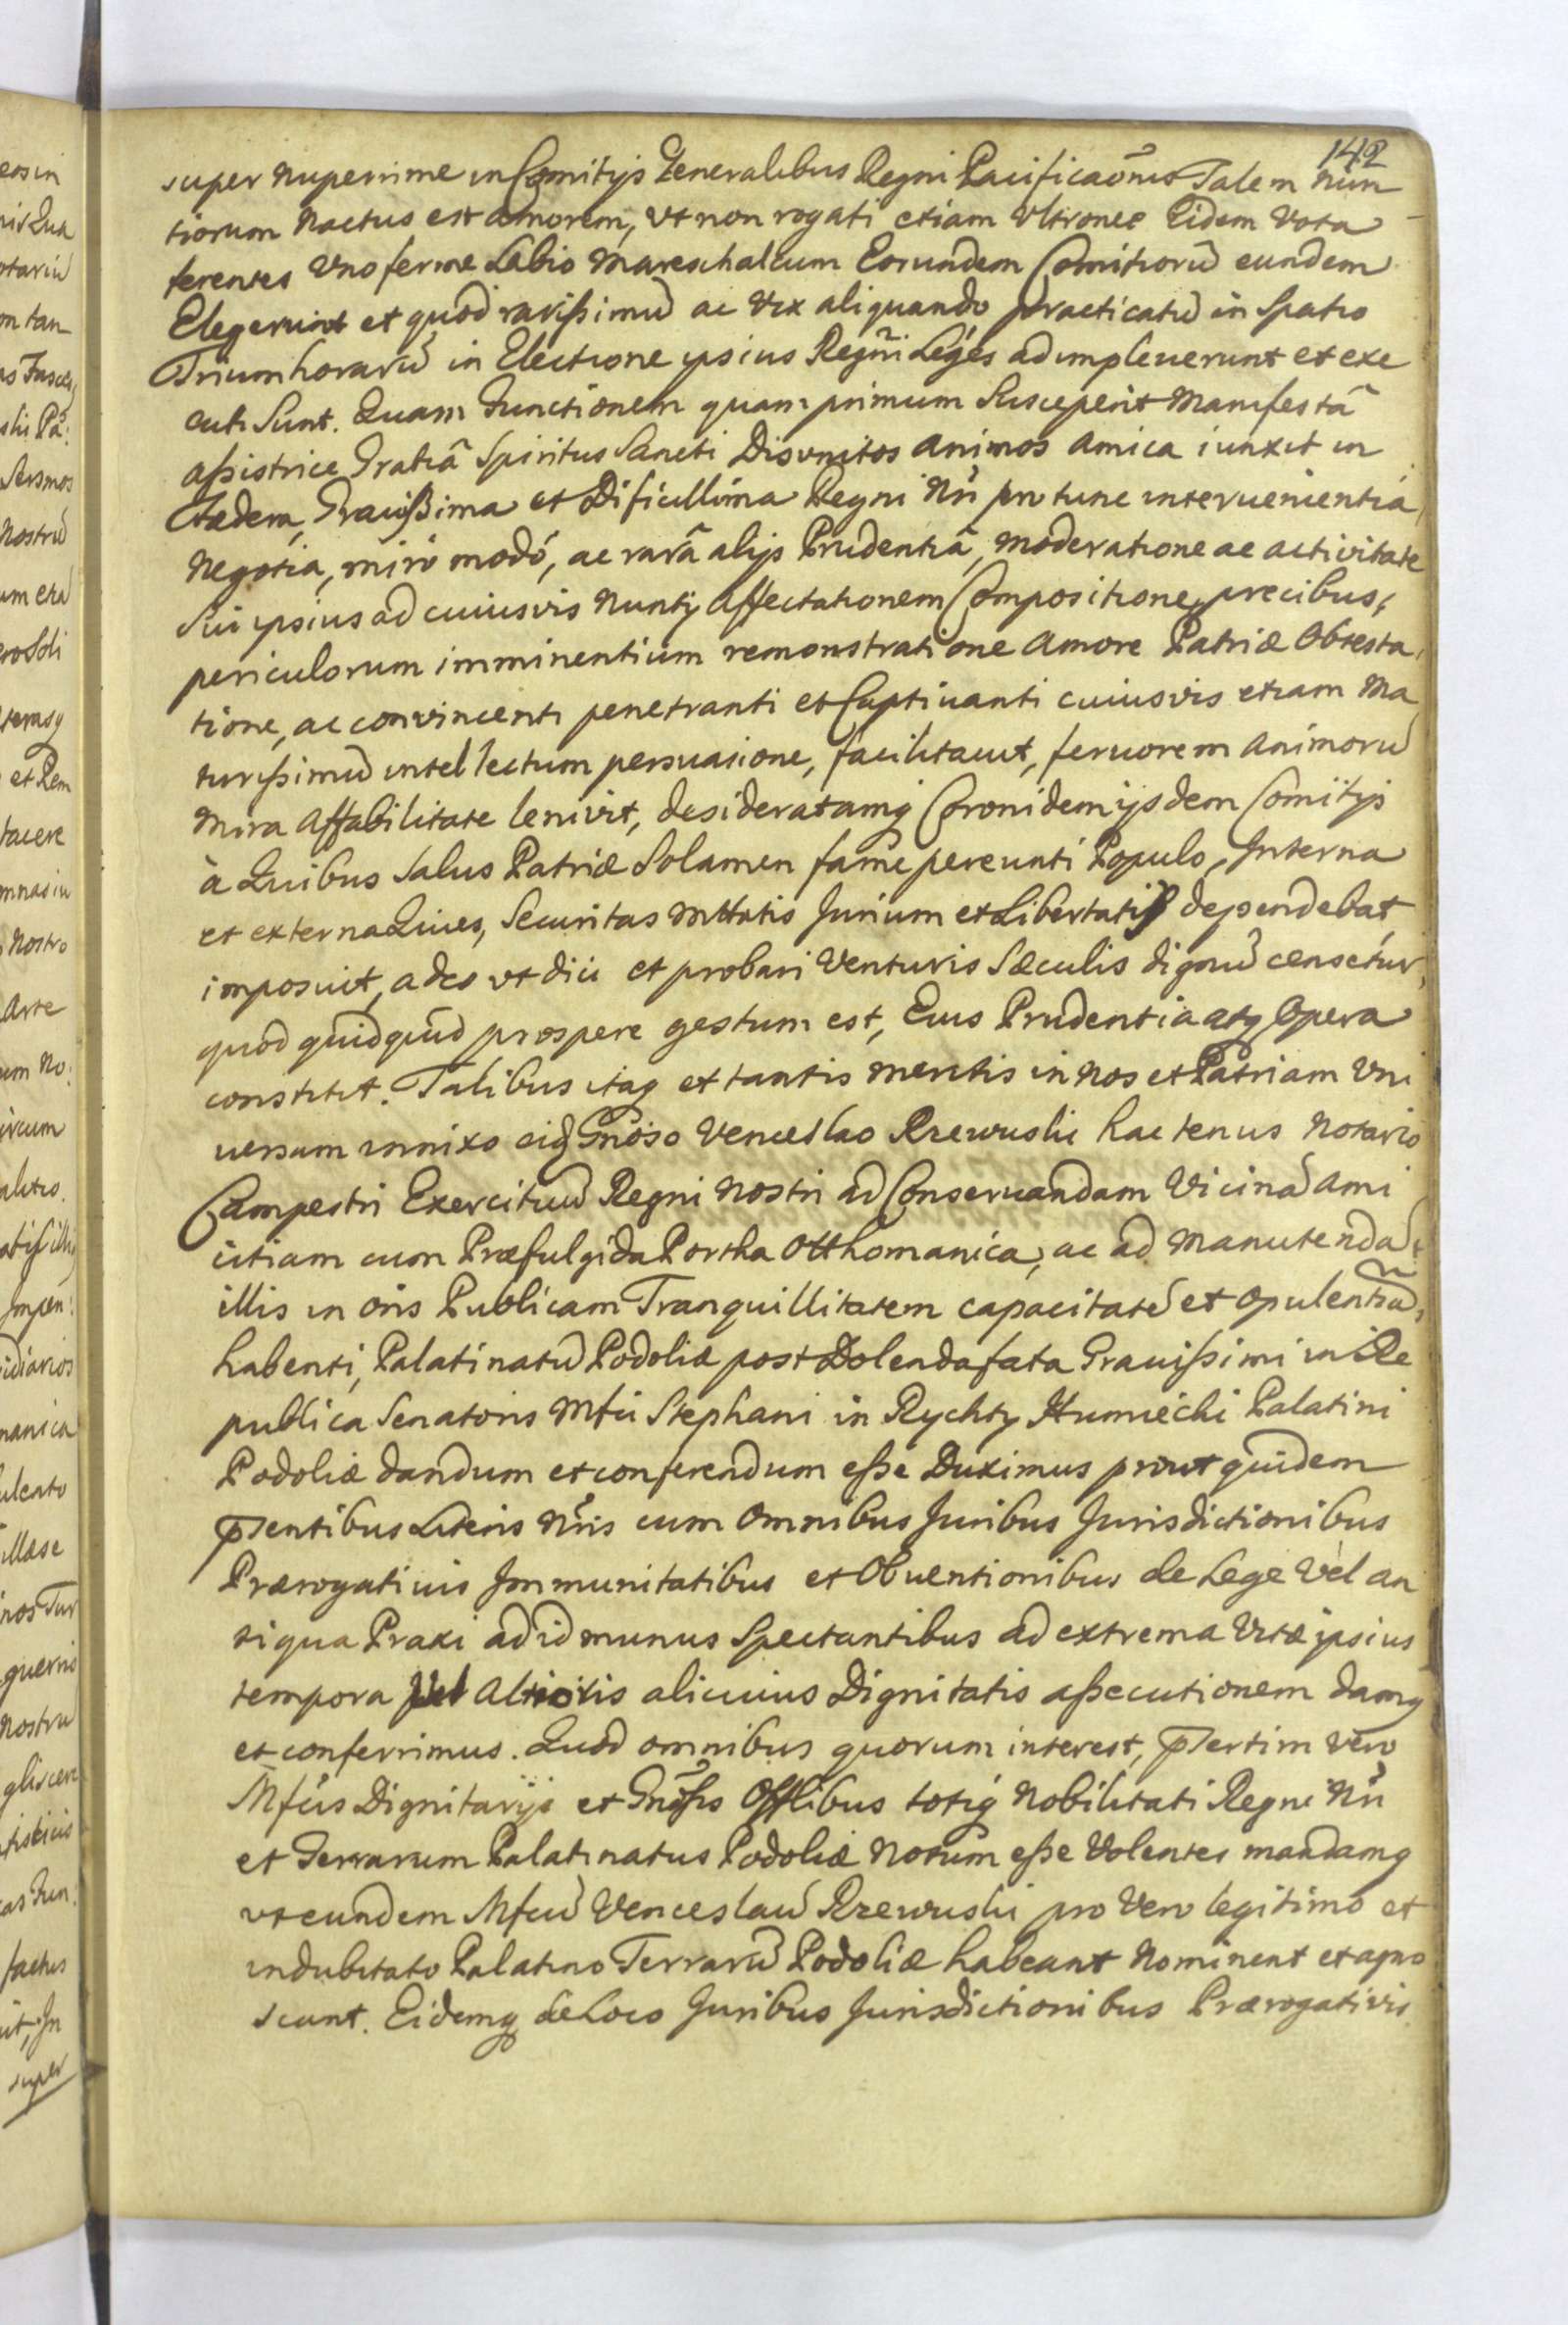 142
super nuperrime in Comitÿs Generalibus Regni Pacificaõnis Talem Nun
tiorum Nactus est amorem, vt non rogati etiam Vltronee Eidem Vota
ferentes Vno ferme Labio Mareschalcum Eorundem Comitiorũ eundem
Elegerunt et quod rarißimũ ac Vix aliquando practicatũ in Spatio
Trium horarũ in Electione ipsius Regni Leges adimpleuerunt et exe
cuti Sunt. Quam Functionem quam primum Susceperit Manifestâ
aßistrice Gratiâ Spiritus Sancti Disunitos animos amica iunxit in
Fædera, Grauißima et Dificillima Regni Nri pro tunc interuenientia
Negotia, miro modó, ac rarâ alÿs Prudentiâ, moderatione ac actiuitate
Sui ipsius ad cuiusvis Nuntÿ Affectationem Compositione, precibus,
periculorum imminentium remonstratione Amore Patriæ Obtesta
tione, ac convincenti penetranti et Captiuanti cuiusvis etiam Ma
turißimũ intellectum persuasione, facilitauit, feruorem Animorũ
Mira Affabilitate lenivit, desideratamq Coronidem ÿsdem Comitÿs
à Quibus Salus Patriæ Solamen fame pereunti Populo, Interna
et externa Quies, Securitas Mttatis Jurium et Libertatis dependebat
imposuit, adeo vt dici et probari Venturis Sæculis dignũ censetur,
quod quidquid prospere gestum est, Eius Prudentia atq Opera
constitit. Talibus itaq et tantis meritis in Nos et Patriam Vni
uersam innixo eidq Gnoso Venceslao Rzewuski hactenus Notario
Campestri Exercituũ Regni Nostri ad Conseruandam Vicinã Ami
citiam cum Præfulgida Portha Otthomanica, ac ad Manutendã
illis in oris Publicam Tranquillitatem capacitatẽ et Opulentiã
habenti, Palatinatũ Podoliæ post Dolenda fata Grauißimi in Re
publica Senatoris Mfci Stephani in Rychty Humiecki Palatini
Podoliæ dandum et conferendum eße Duximus prout quidem
pñtibus Literis Nris cum Omnibus Juribus Jurisdictionibus
Prærogatiuis Immunitatibus et Obuentionibus de Lege Vel an
tiqua Praxi ad id munus Spectantibus ad extrema Vitæ ipsius
tempora Vel Altioris alicuius Dignitatis aßecutionem damq
et conferrimus. Quod omnibus quorum interest, pñertim vero
Mfcis Dignitarÿs et Gnosis Offlibus totiq Nobilitati Regni Nri
et Terrarum Palatinatus Podoliæ Notum eße Volentes mandamq
vt eundem Mfcũ Venceslaũ Rzewuski pro Vero legitimo et
indubitato Palatino Terrarũ Podoliæ habeant Nominent et agno
scant. Eidemq de Loco Juribus Jurisdictionibus Prærogativis